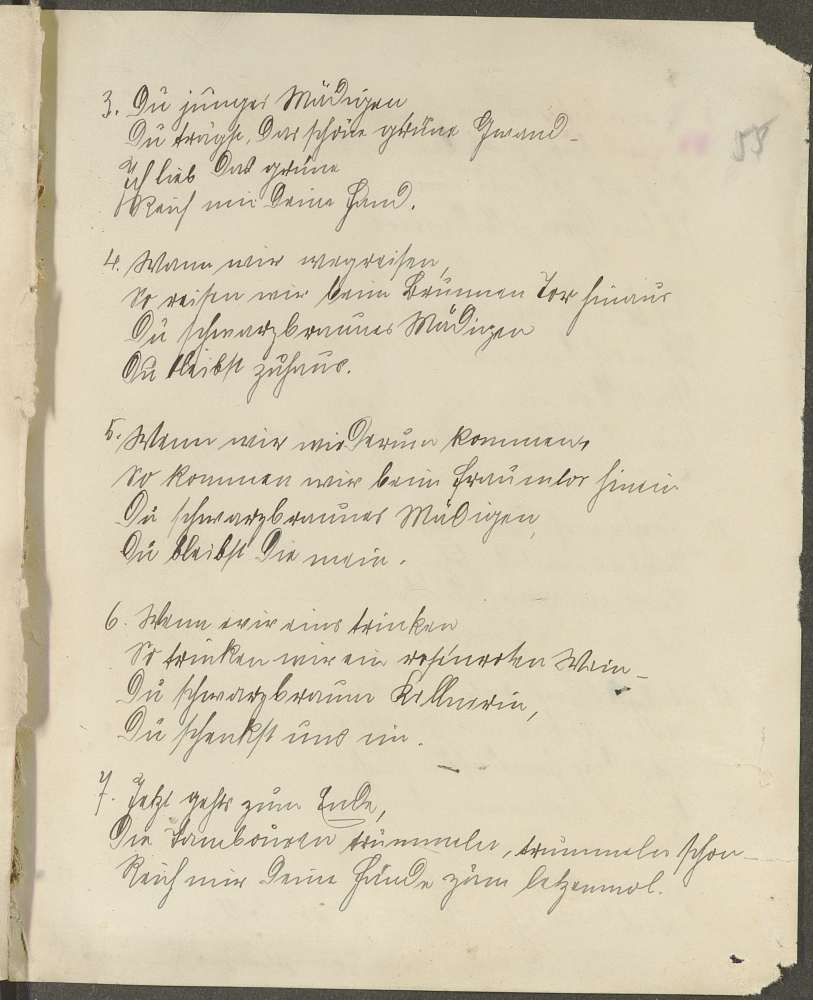 55
3. Du junges Mädigen
Du trägst, das schöne grüne Gwand –
Ich lieb das grüne
Reich mir deine Hand.
4. Wann wir wegreisen,
So reisen wir beim Brunnen Tor hinaus
Du schwarzbraunes Mädigen
Du bleibst zuhaus.
5. Wenn wir wiederum kommen,
So kommen wir beim Frauentor hinein
Du schwarzbraunes Mädigen,
Du bleibst die mein.
6. Wenn wir eins trinken
So trinken wir ein rosenroten Wein –
Du schwarzbraune Kellnerin,
Du schenkst uns ein.
7. Jetzt gehts zum Ende,
Die Tambouren trummeln, trummeln schon –
Reich mir deine Hände zum letzenmol.